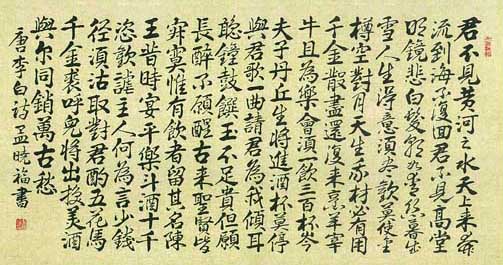 君不見黃河之水天上來奔
流到海不復回君不見高堂
明鏡悲白髮朝如青絲暮成
雪人生得意須盡歡莫使金
樽空對月天生我材必有用
千金散盡還復來烹羊宰
牛且為樂會須一飲三百杯岑
夫子丹丘生將進酒杯莫停
與君歌一曲請君為我傾耳
聽鐘鼓饌玉不足貴但願
長醉不願醒古來聖賢皆
寂寞惟有飲者留其名陳
王昔時宴平樂斗酒十千
恣歡謔主人何為言少錢
徑須沽取對君酌五花馬
千金裘呼兒將出換美酒
與爾同銷萬古愁
唐李白詩孟曉福書